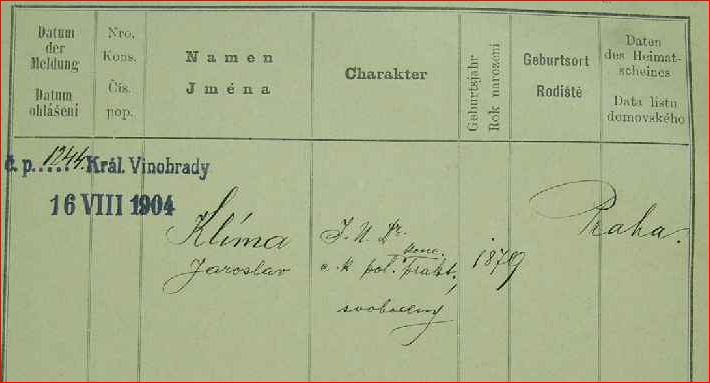 Datum
der
Meldung
Datum
ohlášení
Nro.
Kons.
Čís.
pop.
Namen
Jména
Charakter
Geburtsjahr
Rok narození
Geburtsort
Rodiště
Daten
des Heimat-
scheines
Data listu
domovského
č. p. 1244. Král. Vinohrady
16 VIII 1904
Klíma
Jaroslav
J. U. Dr.
konc.
c. k. pol. prakt.,
svobodný
1879
Praha.